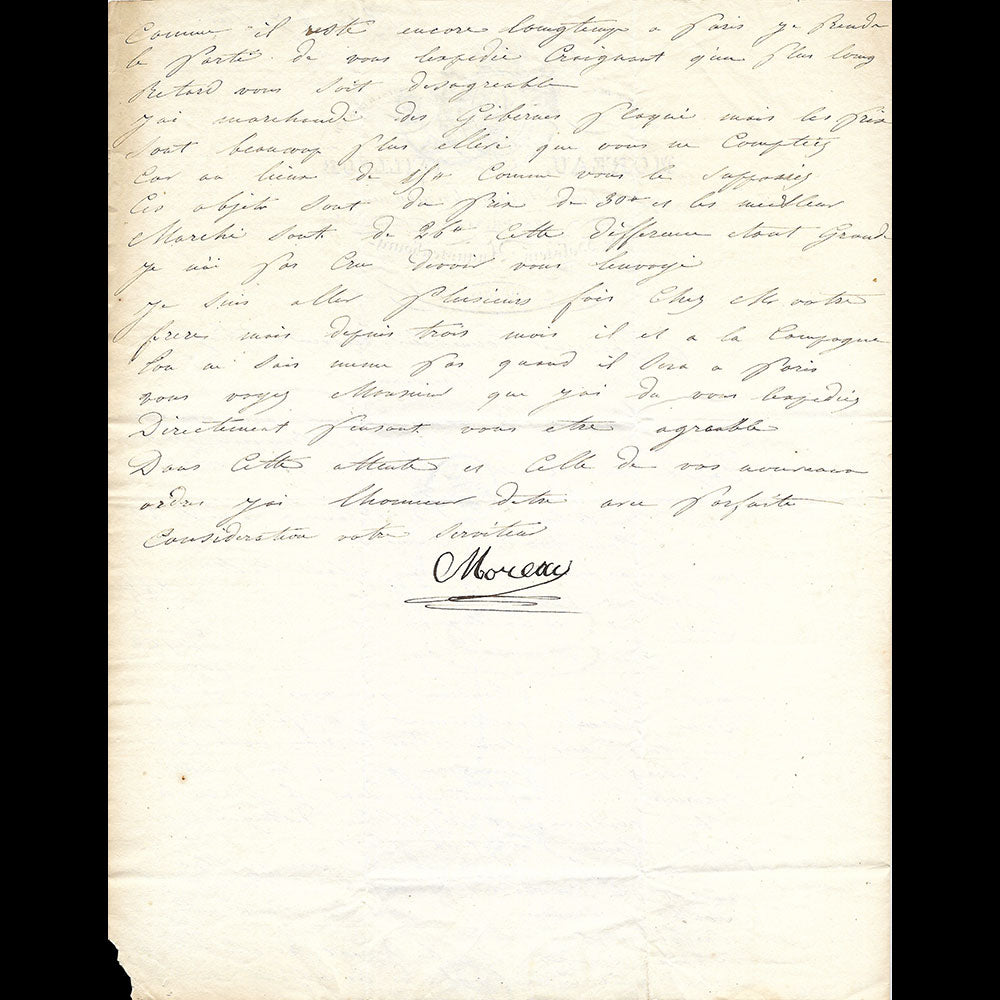 Comme il reste encore longtemp a Paris je Prends
le Partie de vous lexpedié Craignant qun Plus long
Retard vous Soit desagreable
jai marchandé des Gibernes Plaqué mais les Prix
Sont beaucoup Plus que vous ne Comptiez
Car au lieu de Comme vous le Supposiez
Ces objets Sont du Prix de 30 et les meilleur
Marché Sont de 26 Cette difference etant Grande
je nai Pas Cru devoir vous lenvoyé
je Suis aller Plusieurs fois Chez Mr votre
frere mais depuis trois mois il et a la Campagne
lon ni Sais meme Pas quand il Sera a Paris
vous voyez Monsieur que jai du vous lexpediez
Directement Pensant vous etre agreable
Dans Cette attente et Celle de vos nouveaux
ordres jai lhonneur detre avec Parfaite
Consideration votre Serviteur
Moreau